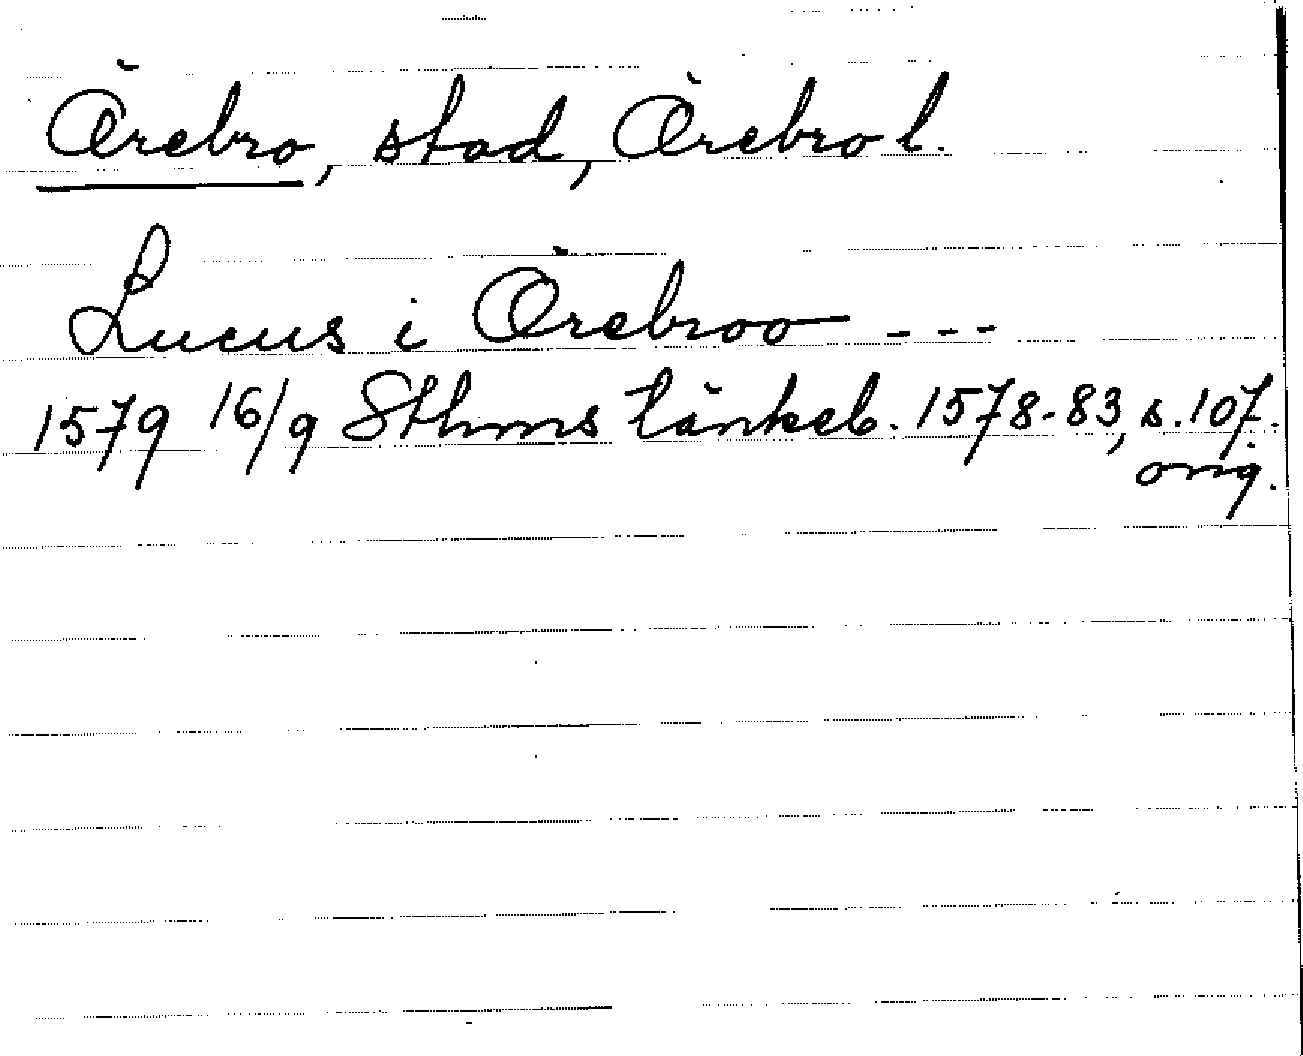 Örebro, stad, Örebro l.
Lucus i Örebroo ---
1579 16/9 Sthms tänkeb. 1578-83, s. 107.
orig.